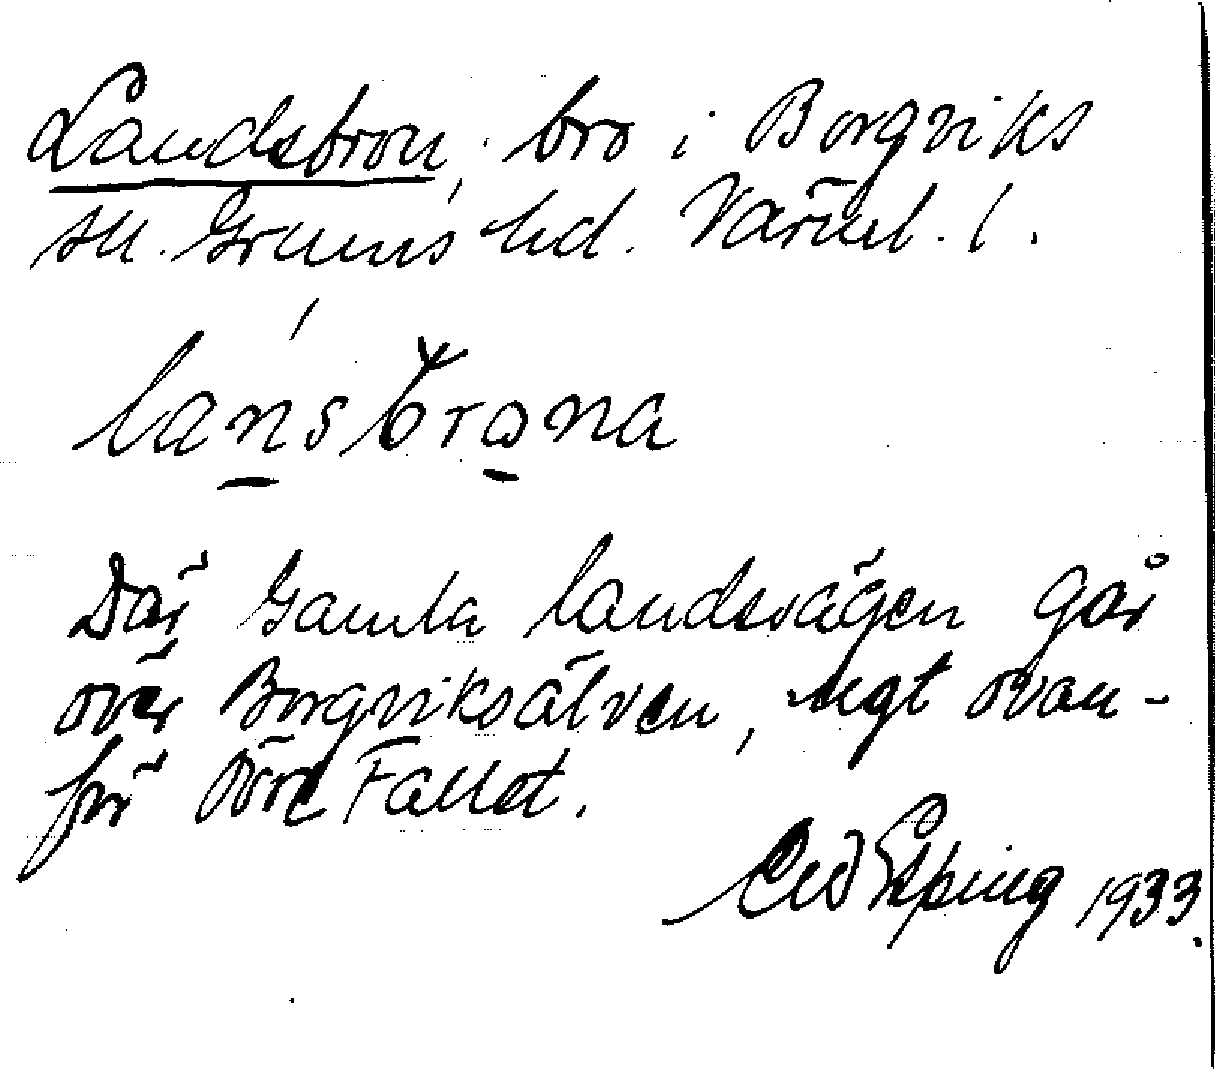 Landsbron, bro i Borgviks
sn. Grums hd. Värml. l.
lansbrona
Där gamla landsvägen går
över Borgviksälven, högt ovan-
för Övre Fallet.
Esping 1933.